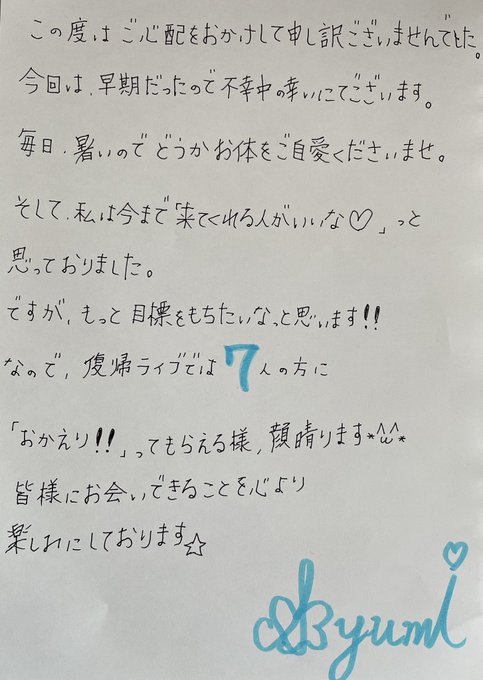 この度はご心配をおかけして申し訳ございませんでした。
今回は、早期だったので不幸中の幸いにでございます。
毎日、暑いのでどうかお体をご自愛くださいませ。
そして、私は今まで「来てくれる人がいいな♡」っと
思っておりました。
ですが、もっと目標をもちたいなっと思います!!
なので、復帰ライブでは7人の方に
「おかえり!!」ってもらえる様、顔晴ります*^ω^*
皆様にお会いできることを心より
楽しみにしております☆
Ayumi